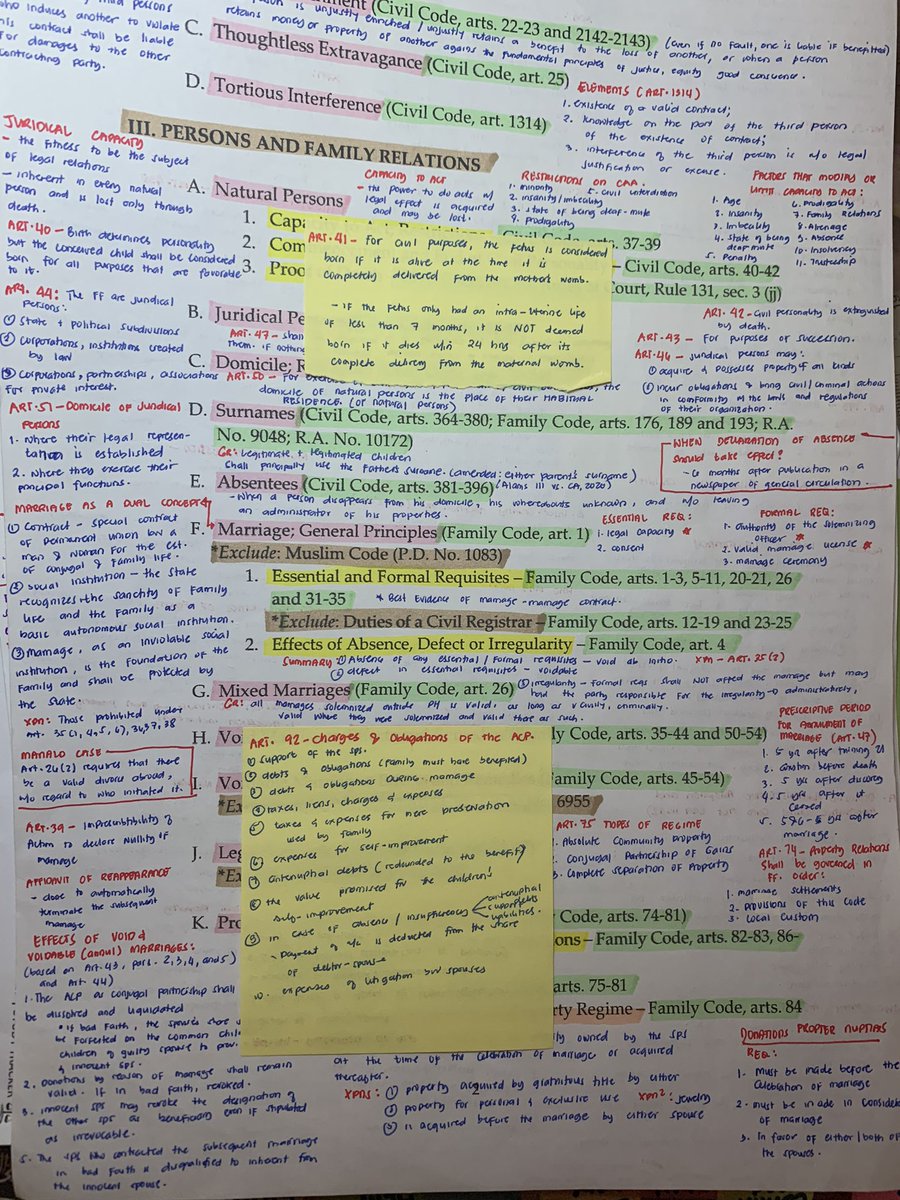 who induces another to violate
his contract shall be liable
for damages to the other
contracting party.
(Civil Code, arts. 22-23 and 2142-2143)
(even if no fault, one is liable if benefitted)
retains money or property of another against the fundamental principles of justice, equity good conscience.
C. Thoughtless Extravagance (Civil Code, art. 25)
D. Tortious Interference (Civil Code, art. 1314)
ELEMENTS (ART. 1314)
1. existence of a valid contract;
2. knowledge on the part of the third person
of the existence of contract;
3. interference of the third person is w/o legal
justification or excuse.
III. PERSONS AND FAMILY RELATIONS
JURIDICAL CAPACITY
- the fitness to be the subject
of legal relations
- inherent in every natural
person and is lost only through
death.
A. Natural Persons
CAPACITY TO ACT
- the power to do acts w/
legal effect is acquired
and may be lost.
RESTRICTIONS ON CAA.
1. minority
2. insanity/imbecility
3. state of being deaf-mute
4. Prodigality
5. civil interdiction
FACTORS THAT MODIFY OR
LIMIT CAPACITY TO ACT:
1. Age
2. Insanity
3. Imbecility
4. State of being
deaf mute
5. Penalty
6. Prodigality
7. Family Relations
8. Alienage
9. Absence
10. Insolvency
11. Trusteeship
1.
2.
3.
arts. 37-39
– Civil Code, arts. 40-42
Court, Rule 131, sec. 3 (jj)
ART. 40 - Birth determines personality
but the conceived child shall be considered
born for all purposes that are favorable
to it.
ART. 41 - For civil purposes, the fetus is considered
born if it is alive at the time it is
completely delivered from the mother's womb.
- IF the fetus only had an intra-uterine life
of less than 7 months, it is NOT deemed
born if it dies w/n 24 hrs after its
complete delivery from the maternal womb.
ART. 42 - Civil personality is extinguished
by death.
ART. 43 - For purposes of succession.
ART. 44: The FF are juridical
Persons:
① State & political subdivisions
② Corporations, institutions created
by law
③ corporations, partnerships, associations
for private interest.
B. Juridical Pe
ART. 46 - juridical persons may:
① acquire & possess property of all kinds
② incur obligations & bring civil/criminal actions
in conformity w/ the laws and regulations
of their organization.
C. Domicile; R
domicile of natural persons is the place of their HABITUAL
RESIDENCE. (of natural persons)
ART. 51 - Domicile of Juridical
Persons
1. Where their legal represen-
tation is established
2. Where they exercise their
principal functions.
D. Surnames (Civil Code, arts. 364-380; Family Codes, arts. 176, 189 and 193; R.A.
No. 9048; R.A. No. 10172)
GR: Legitimate & legitimated children
Shall principally use the father's surname. (amended: either parent's surname)
(Alanis III vs. CA, 2020)
WHEN DECLARATION OF ABSENCE
should take effect?
- 6 months after publication in a
newspaper of general circulation.
E. Absentees (Civil Code, arts. 381-396)
- When a person disappears from his domicile, his whereabouts unknown, and w/o leaving
an administrator of his properties.
MARRIAGE AS A DUAL CONCEPT
① Contract - special contract
of permanent union b/w a
man & woman for the est.
of conjugal & family life.
② social institution - the State
recognizes the sanctity of family
life and the family as a
basic autonomous social institution.
③ marriage, as an inviolable social
institution, is the foundation of the
family and shall be protected by
the State.
F. *Marriage; General Principles (Family Code, art. 1)
*Exclude: Muslim Code (P.D. No. 1083)
ESSENTIAL REQ:
1. legal capacity
2. consent
FORMAL REQ:
1. authority of the solemnizing
officer
2. valid marriage license
3. marriage ceremony
1. Essential and Formal Requisites – Family Code, arts. 1-3, 5-11, 20-21, 26
and 31-35
* Best Evidence of marriage - marriage contract.
*Exclude: Duties of a Civil Registrar – Family Code, arts. 12-19 and 23-25
2. Effects of Absence, Defect or Irregularity – Family Code, art. 4
SUMMARY: ① Absence of any essential/formal requisites - void ab initio. XPN - ART. 35(2)
② defect in essential requisites - voidable
③ irregularity - formal reqs shall NOT affect the marriage but may
hold the party responsible for the irregularity administratively,
civilly, criminally.
G. Mixed Marriages (Family Code, art. 26)
GR: all marriages solemnized outside PH is valid, as long as
valid where they were solemnized and valid there as such.
XPN: Those prohibited under
Art. 35 (1, 4, 5, 6), 36, 37, 38
MANALO CASE
Art. 26(2) requires that there
be a valid divorce abroad,
w/o regard to who initiated it.
H. Vo
arts. 35-44 and 50-54)
I. Vo
amily Code, arts. 45-54)
*Ex
6955
PRESCRIPTIVE PERIOD
FOR ANNULMENT OF
MARRIAGE (ART. 47)
1. 5 yrs after turning 21
3. 5 yrs after discovery
marriage.
ART. 39 - Imprescriptibility of
Action to declare Nullity of
marriage
AFFIDAVIT OF REAPPEARANCE
terminate the subsequent
marriage
J. Leg
*Ex
ART. 92 - Charges & Obligations of the ACP.
① support of the sps.
② debts & obligations (family must have benefited)
③ debts & obligations DURING marriage
④ taxes, liens, charges & expenses
⑤ taxes & expenses for mere preservation
used by family
⑥ expenses for self-improvement
⑦ antenuptial debts (redounded to the benefit)
⑧ the value promised for the children's
self-improvement
⑨ in case of absence / insufficiency
antenuptial
liabilities.
- payment of is deducted from the share
of debtor-spouse
10. expenses of litigation b/w spouses
ART. 75 TYPES OF REGIME
1. Absolute Community Property
2. Conjugal Partnership of Gains
3. Complete Separation of Property
ART. 74 - Property Relations
shall be governed in
ff. order:
1. marriage settlements
2. provisions of this Code
3. Local Custom
K. Pro
Code, arts. 74-81)
ons – Family Code, arts. 82-83, 86-
arts. 75-81
rty Regime – Family Code, arts. 84
EFFECTS OF VOID &
VOIDABLE (annul) MARRIAGES:
(based on Art. 43, pars. 2, 3, 4, and 5)
and Art. 44)
1. The ACP or conjugal partnership shall
be dissolved and liquidated
* if bad faith, the spouse's share
be forfeited on the common chil
children of guilty spouse
& innocent sps.
2. Donations by reason of marriage shall remain
valid. If in bad faith, revoked.
3. Innocent sps may revoke the designation of
the other sps as beneficiary even if stipulated
as irrevocable.
5. The sps who contracted the subsequent marriage
in bad faith is disqualified to inherit from
the innocent spouse.
owned by the sps
at the time of the celebration of marriage or acquired
thereafter.
XPNS: ① property acquired by gratuitous title by either
② property for personal & exclusive use XPN²: jewelry
③ acquired before the marriage by either spouse
DONATIONS PROPTER NUPTIAS
REQ:
1. Must be made before the
celebration of marriage
2. must be made in consider
of marriage
3. In favor of either/both of
the spouses.